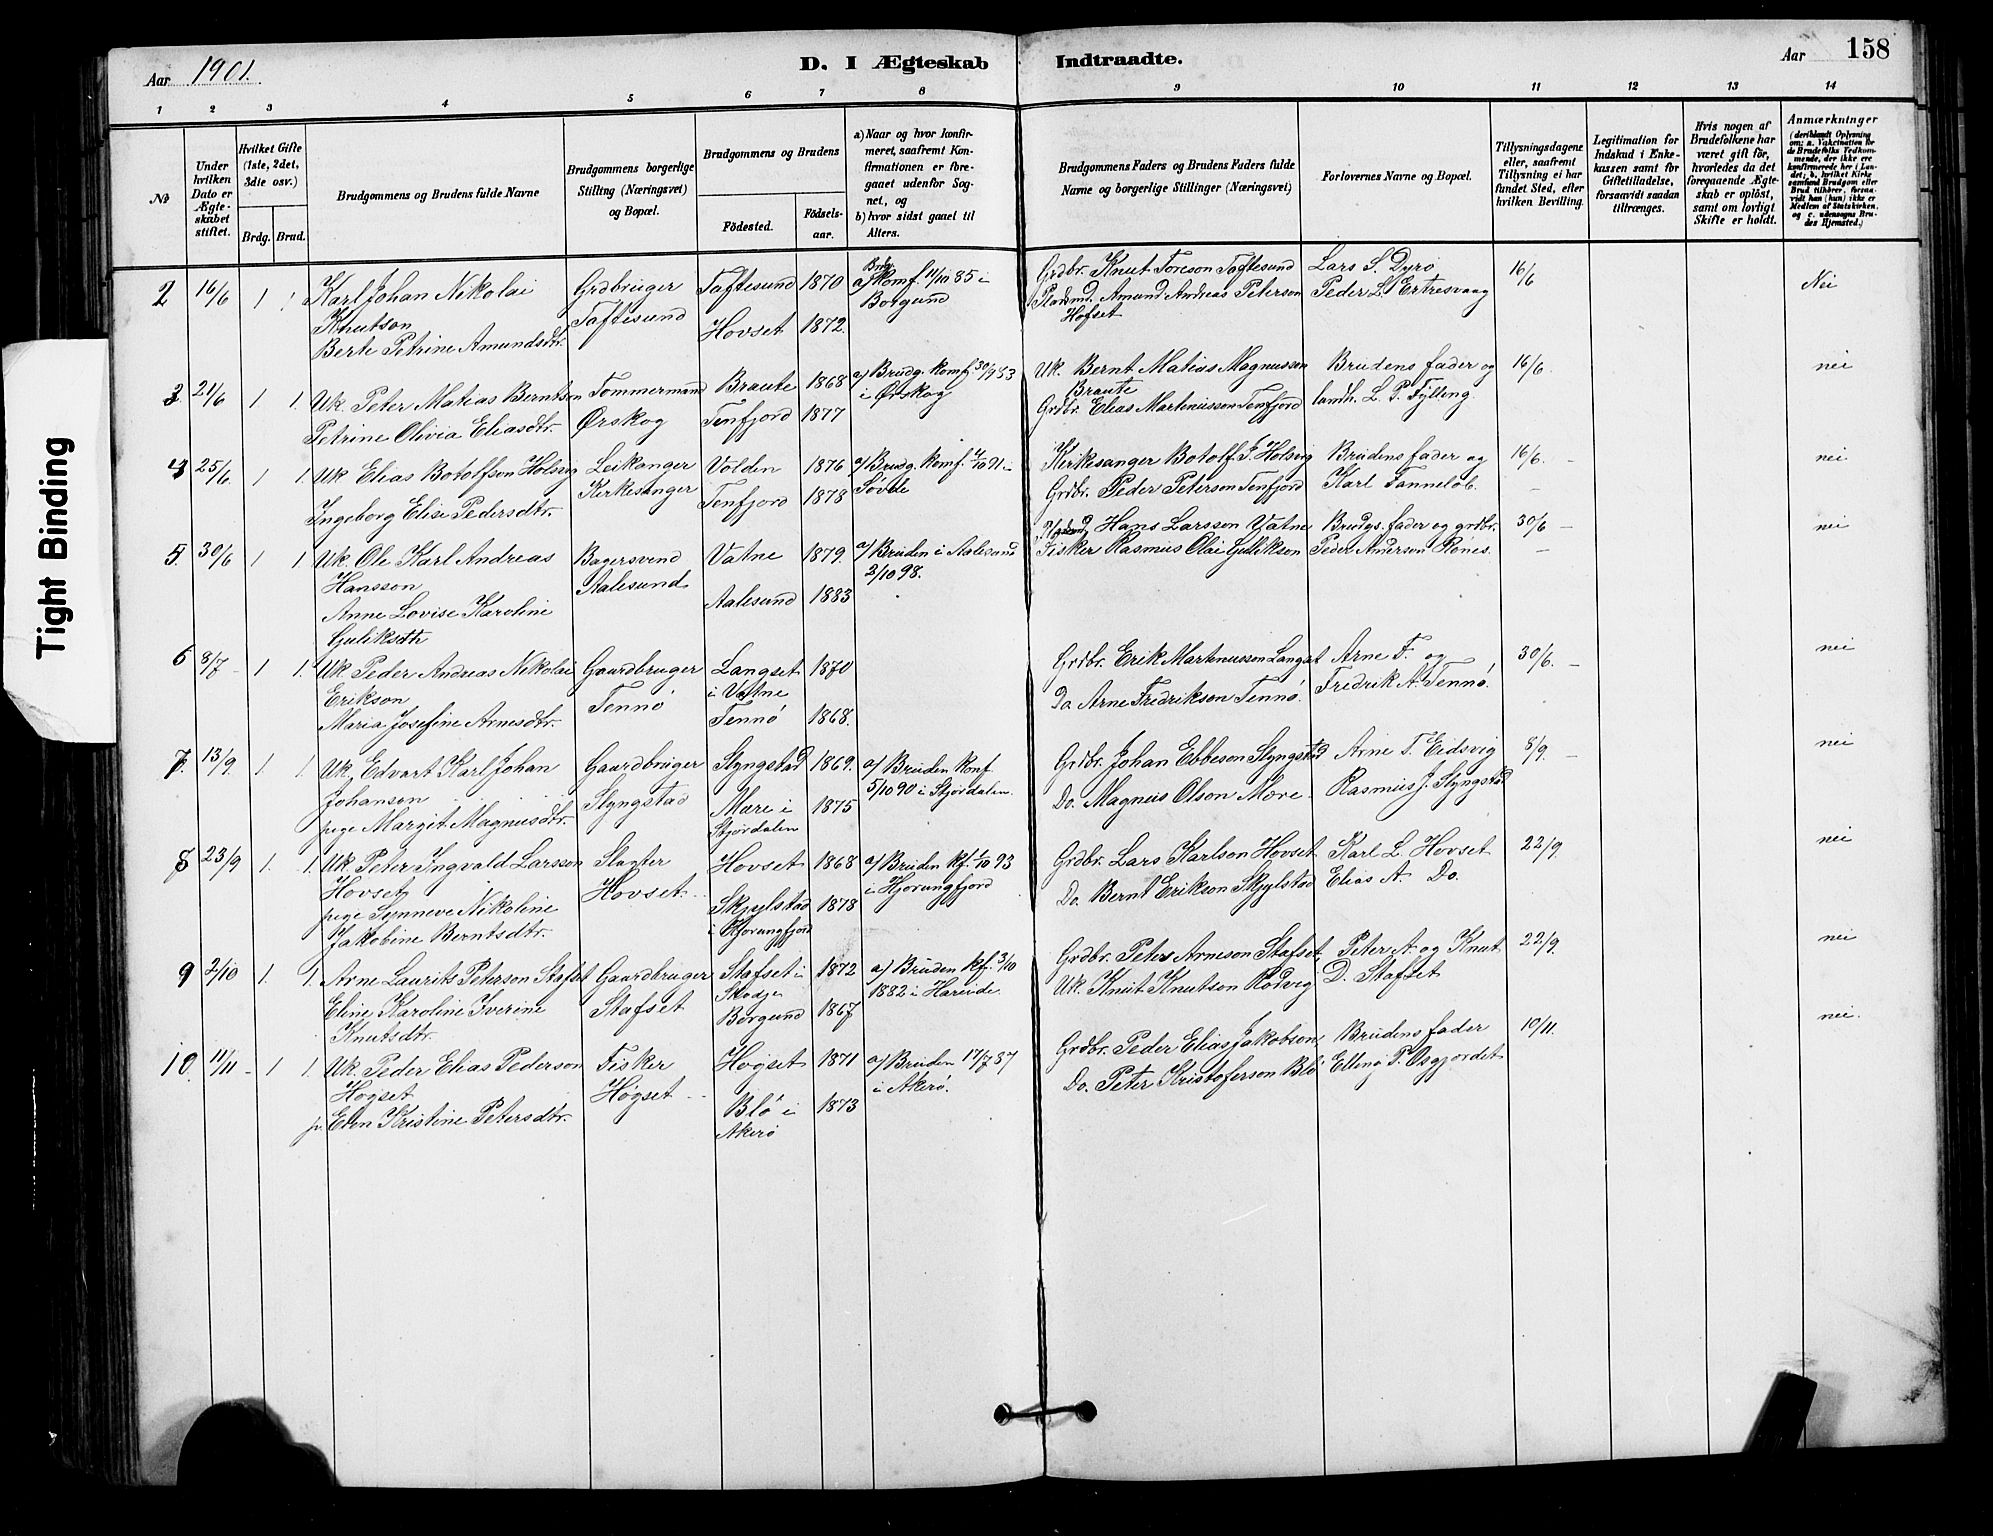 Tight Binding
Aar 1901.
D. I Ægteskab Indtraadte.
Aar 158
1 2 3 4 5 6 7 8 9 10 11 12 13 14
№
Under hvilken Dato er Ægteskabet stiftet.
Hvilket Gifte (1ste, 2det, 3die osv.)
Brdg. Brud.
Brudgommens og Brudens fulde Navne
Brudgommens borgerlige Stilling (Næringsvei) og Bopæl.
Brudgommens og Brudens
Födested.
Födsels-aar.
a) Naar og hvor konfirmeret, saafremt Konfirmationen er foregaaet udenfor Sognet, og
b) hvor sidst gaaet til Alters.
Brudgommens Faders og Brudens Faders fulde Navne og borgerlige Stillinger (Næringsvei)
Forlovernes Navne og Bopæl.
Tillysningsdagene eller, saafremt Tillysning ei har fundet Sted, efter hvilken Bevilling.
Legitimation for Indskud i Enkekassen samt for Giftetilladelse, forsaavidt saadan tiltrænges.
Hvis nogen af Brudefolkene har været gift för, hvorledes da det foregaaende Ægteskab er oplöst, samt om lovligt Skifte er holdt.
Anmærkninger
2 16/6 1 1 Karl Johan Nikolai Knutson
Berte Petrine Amundsdtr.
Grdbruger Taftesund
Taftesund 1870
Hovset 1872.
Brdg. a) Komf. 11/10 85 i Borgund
Grdbr. Knut Toreson Taftesund
Pladsmd. Amund Andreas Peterson Hofset
Lars S. Dyrø
Peder L. Ertresvaag
16/6
Nei
3. 21/6 1 1. Uk. Peter Matias Berntsen
Petrine Olivia Eliasdtr.
Tommermand Ørskog
Braute 1868
Tenfjord 1877
a) Brudg. Komf. 30/9 83 i Ørskog
Uk. Bernt Matias Magnusson Braute
Grdbr. Elias Martinusson Tenfjord
Brudens fader og
landh. L. P. Fylling.
16/6.
nei
4 25/6 1 1. Uk Elias Botolfson Holsvig
Ingeborg Elise Pedersdtr.
Leikanger Kirkesanger
Volden 1876
Tenfjord 1878
a) Brudg. Komf. 4/10 91 i Søvde
Kirkesanger Botolf J. Holsvig
Grdbr. Peder Peterson Tenfjord
Brudens fader og
Karl Tanneløb.
16/6. -
nei
5. 30/6 1 1 Uk. Ole Karl Andreas Hansson
Anne Lovise Karoline Guliksdtr
Bagersvend Aalesund
Vatne 1879.
Aalesund 1883
a) Bruden i Aalesund 2/10 98.
Pladsmd. Hans Larsson Vatne
Fisker Rasmus Olai Gulikson
Brudgs. fader og grdbr.
Peder Anderson Rønes.
30/6 -
nei
6 8/7 - 1 1. Uk Peder Andreas Nikolai Erikson
Maria Josefine Arnesdtr.
Gaardbruger Tennø
Langset i Vatne 1870
Tennø 1868.
Grdbr. Erik Martinusson Langset
Do Arne Fredrikson Tennø.
Arne F. og
Fredrik A. Tennø.
30/6. -
nei
7. 13/9 1. 1. Uk. Edvart Karl Johan Johanson
pige Margit Magnusdtr.
Gaardbruger Slyngstad
Slyngstad 1869.
Mære i Stjørdalen 1875
a) Bruden Konf. 5/10 90 i Stjørdalen.
Grdbr. Johan Ebbeson Slyngstad
Do. Magnus Olson Mære -
Arne T. Eidsvig
Rasmus J. Slyngstad
8/9. -
nei
8 23/9 1. 1. Uk. Peter Ingvald Larsson Hovset
pige Synneve Nikoline Jakobine Berntsdtr.
Slagter Hovset.
Hovset 1868
Skjylstad i Hjørungfjord 1878
a) Bruden Kf. 1/10 93 i Hjørungfjord
Grdbr. Lars Karlson Hovset
Do. Bernt Erikson Skjylstad
Karl L. Hovset
Elias A. Do.
22/9.
nei
9 2/10 1. 1. Arne Laurits Peterson Stafset
Eline Karoline Iverine Knutsdtr.
Gaardbruger Stafset
Stafset i Skodje 1872
Borgund 1867
a) Bruden Kf. 3/10 1882 i Hareide.
Grdbr. Peter Arneson Stafset,
Uk. Knut Knutson Rødvig
Peter A. og Knut
D. Stafset
22/9.
nei
10. 11/11 - 1 1. Uk. Peder Elias Pederson Høgset
p. Elen Kristine Petersdtr.
Fisker Høgset
Høgset 1871
Blø i Akerø 1873
a) Bruden 17/7 87 i Akerø.
Grdbr. Peder Elias Jakobson,
Do. Peter Kristoferson Blø
Brudens fader
Elling P. Osgjordet
10/11.
nei.